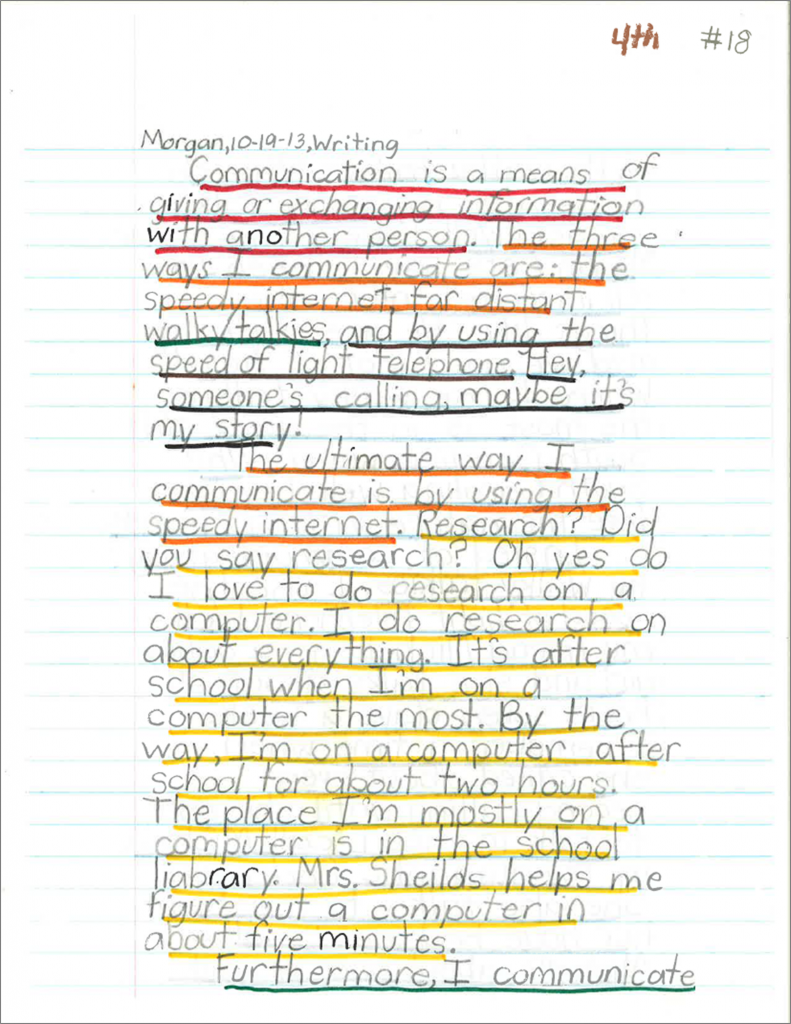 4th #18
Morgan, 10-19-13, Writing
Communication is a means of
giving or exchanging information
with another person. The three
ways I communicate are: the
speedy internet, far distant
walky/talkies, and by using the
speed of light telephone. Hey,
someone's calling, maybe it's
my story!
The ultimate way I
communicate is by using the
speedy internet. Research? Did
you say research? Oh yes do
I love to do research on a
computer. I do research on
about everything. It's after
school when I'm on a
computer the most. By the
way, I'm on a computer after
school for about two hours.
The place I'm mostly on a
computer is in the school
liabrary. Mrs. Sheilds helps me
figure out a computer in
about five minutes.
Furthermore, I communicate